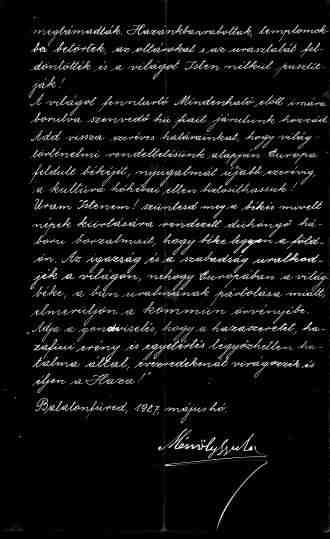 megtámadták. Hazánkba raboltak, templomok-
ba betörtek, az oltárokat s az úrasztalát fel-
döntötték és a világot Isten nélkül pusztít-
ják!
A világot fenntartó Mindenható előtt imára
borulva szenvedő hű fiaid járulunk hozzád
Add vissza ezeréves határainkat, hogy világ-
történelmi rendeltetésünk alapján Európa
feldúlt békéjét, nyugalmát újabb ezerévig
a kultúra ellen biztosíthassuk!
Uram Istenem! szüntesd meg a békés művelt
népek kiirtására rendezett dühöngő há-
ború borzalmait, hogy béke legyen a föld-
ön. Az igazság és a szabadság uralkod-
jék a világon, nehogy Európában a világ-
béke, a bűn uralmának pártolása miatt
elmerüljön a kommün örvényébe.
Adja a gondviselés, hogy a hazaszeretet, ha-
zafiúi erény és egyetértés legyőzhetlen ha-
talma által, évezredekenát virágozzék és
éljen a Haza!"
Balatonfüred, 1937. május hó.